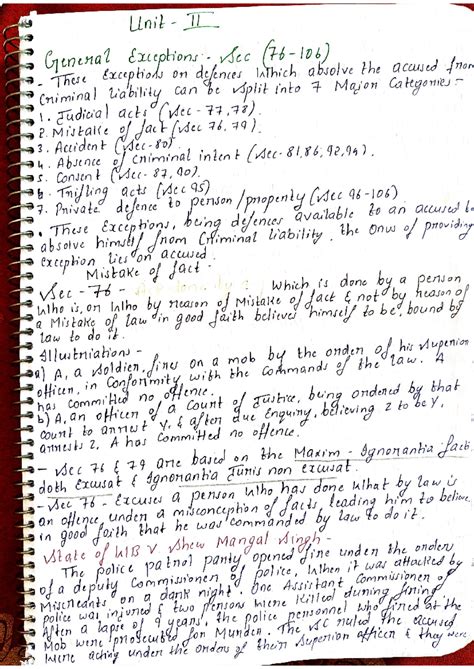 Unit - II
General Exceptions - Sec (76-106)
- These Exceptions or defences which absolve the accused from
Criminal liability can be split into 7 Major Categories -
1. Judicial acts (Sec - 77, 78).
2. Mistake of fact (Sec 76, 79).
3. Accident (Sec-80).
4. Absence of Criminal intent (Sec - 81, 86, 92, 94).
5. Consent (Sec - 87, 90).
6. Trifling acts (Sec 95)
7. Private defence to person / property (Sec 96-106)
• These Exceptions, being defences available to an accused to
absolve himself from Criminal liability, the Onus of providing
exception lies on accused.
Mistake of fact -
Sec - 76 - which is done by a person
who is, or who by reason of Mistake of fact & not by reason of
a Mistake of law in good faith believes himself to be, bound by
law to do it.
Illustriations -
a) A, a soldier, fires on a mob by the order of his superior
officer, in Conformity with the Commands of the law. A
has committed no offence.
b) A, an officer of a Court of Justice, being ordered by that
court to arrest Y, & after due Enquiry, believing Z to be Y,
arrests Z. A has committed no offence.
- Sec 76 & 79 are based on the Maxim - Ignorantia facti
doth Excusat & Ignorantia Juris non excusat.
- Sec 76 - Excuses a person who has done what by law is
an offence, under a misconception of facts, leading him to believe
in good faith that he was commanded by law to do it.
State of WB V Shew Mangal Singh -
The police patrol party opened fire under the order
of a deputy Commissioner of police, when it was attacked by
Miscreants on a dark night. One Assistant Commissioner of
police was injured & two persons were killed during firing
After a lapse of 9 years, the police personnel who fired at the
Mob were prosecuted for Murder. The SC ruled the accused
were acting under the orders of their superior officer & they were